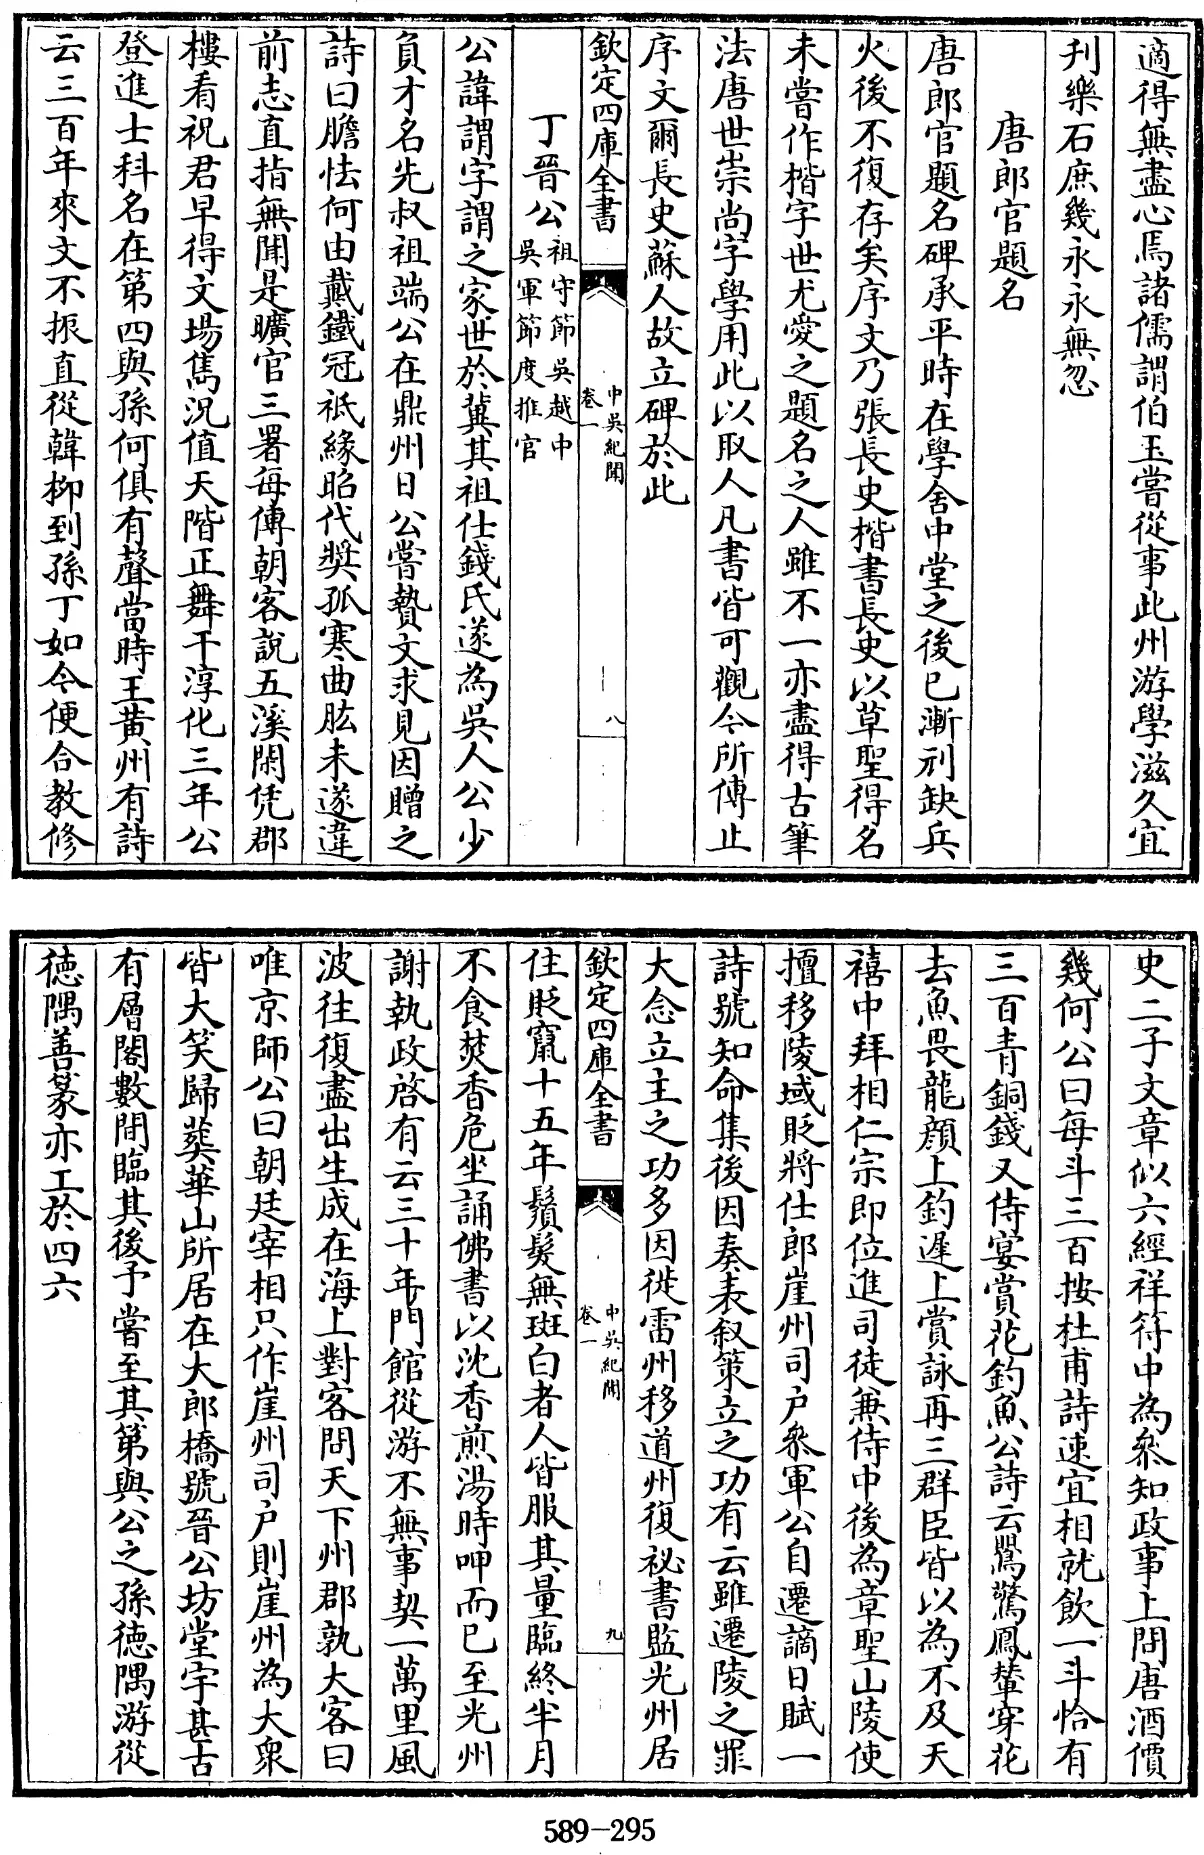 適得無盡心焉諸儒謂伯玉嘗從事此州游學滋久宜
刋樂石庶幾永永無忽
唐郎官題名
唐郎官題名碑承平時在學舍中堂之後已漸刓缺兵
火後不復存矣序文乃張長史楷書長史以草聖得名
未嘗作楷字世尤愛之題名之人雖不一亦盡得古筆
法唐世崇尚字學用此以取人凡書皆可觀今所傳止
序文爾長史蘇人故立碑於此
欽定四庫全書
中吳紀聞
卷一
八
丁晉公
祖守節吳越中
吳軍節度推官
公諱謂字謂之家世於冀其祖仕錢氏遂為吳人公少
負才名先叔祖端公在鼎州日公嘗贄文求見因贈之
詩曰膽怯何由戴鐵冠祗緣昭代奬孤寒曲肱未遂違
前志直指無聞是曠官三署每傳朝客說五溪閑凭郡
樓看祝君早得文場雋況值天階正舞干淳化三年公
登進士科名在第四與孫何俱有聲當時王黃州有詩
云三百年來文不振直從韓柳到孫丁如今便合教修
史二子文章似六經祥符中為叅知政事上問唐酒價
幾何公曰每斗三百按杜甫詩速宜相就飲一斗恰有
三百青銅錢又侍宴賞花釣魚公詩云鸎驚鳳輦穿花
去魚畏龍顔上釣遲上賞詠再三群臣皆以為不及天
禧中拜相仁宗即位進司徒兼侍中後為章聖山陵使
擅移陵域貶將仕郎崖州司户叅軍公自遷謫日賦一
詩號知命集後因奏表叙策立之功有云雖遷陵之罪
大念立主之功多因徙雷州移道州復祕書監光州居
欽定四庫全書
中吳紀聞
卷一
九
住貶竄十五年鬚髮無斑白者人皆服其量臨終半月
不食焚香危坐誦佛書以沈香煎湯時呷而已至光州
謝執政啓有云三十年門館從游不無事契一萬里風
波往復盡出生成在海上對客問天下州郡孰大客曰
唯京師公曰朝廷宰相只作崖州司户則崖州為大衆
皆大笑歸葬華山所居在大郎橋號晉公坊堂宇甚古
有層閣數間臨其後予嘗至其第與公之孫徳隅游從
徳隅善篆亦工於四六
589-295